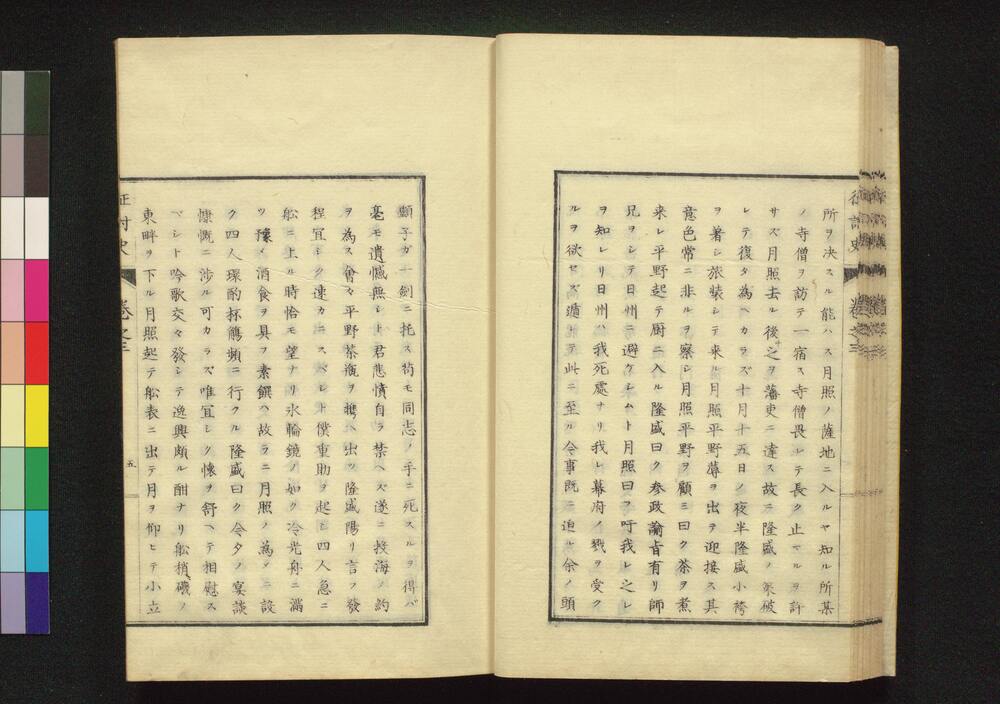 所ヲ決スル能ハス月照ノ薩地ニ入ルヤ知ル所某
ノ寺僧ヲ訪テ一宿ス寺僧畏レテ長ク止マルヲ許
サズ月照去ル後之ヲ藩吏ニ達ス故ニ隆盛ノ家破
レテ復タ為ヘカラズ十月十五日ノ夜半隆盛小袴
ヲ著シ旅装シテ来ル月照平野蓐ヲ出テ迎接ス其
意色常ニ非ルヲ察シ月照平野ヲ顧ミ曰ク茶ヲ煮
来レ平野起テ厨ニ入ル隆盛曰ク参政諭旨有リ師
兄ヲシテ日州ニ避ケシムト月照曰フ吁我レ之レ
ヲ知レリ日州ハ我死處ナリ我レ幕府ノ戮ヲ受ク
ルヲ欲セズ遁レテ此ニ至ル今事既ニ迫ル余ノ頭
顱子ガ一劍ニ托ス苟モ同志ノ手ニ死スルヲ得バ
毫モ遺憾無シト君悲憤自ラ禁ヘス遂ニ投海ノ約
ヲ為ス會々平野茶瓶ヲ携ヘ出ツ隆盛陽リ言フ發
程宜シク速カニスベシト僕重助ヲ起シ四人急ニ
舩ニ上ル時恰モ望ナリ氷輪鏡ノ如ク冷光舟ニ滿
ツ豫メ酒食ヲ具フ素饌ハ故ラニ月照ノ為メニ設
ク四人環酌杯觴頻ニ行クル隆盛曰ク今夕ノ宴談
慷慨ニ渉ル可カラズ唯宜シク懐ヲ舒ヘテ相慰ス
ベシト吟歌交々發シテ逸興頗ル酣ナリ舩梢磯ノ
東畔ヲ下ル月照起テ舩表ニ出テ月ヲ仰ヒテ小立
征討史
卷之三
五